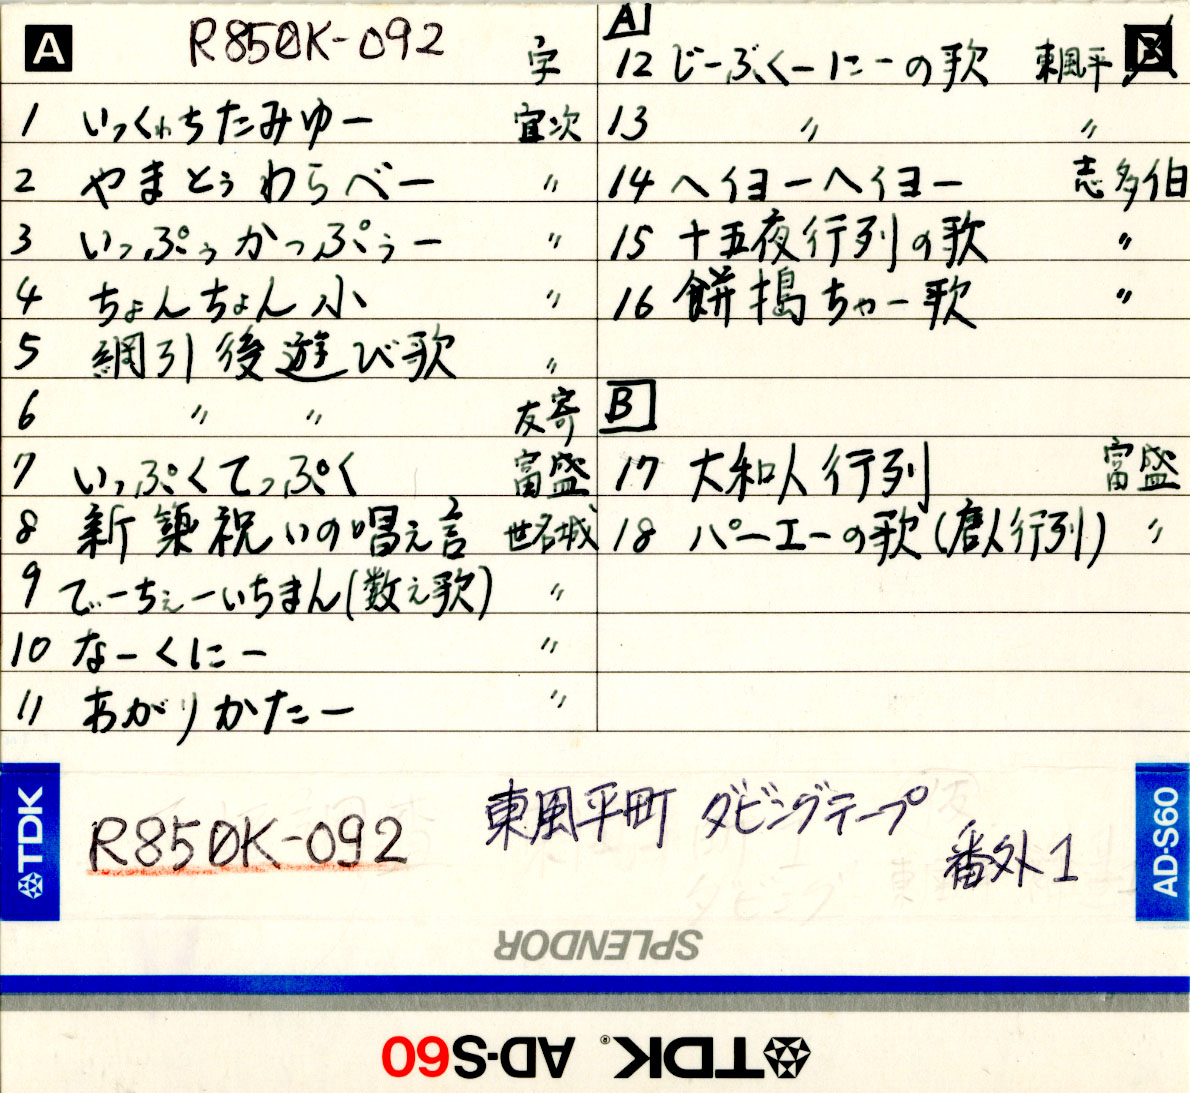 A R850K-092 字
1 いっくゎちたみゆー 宜次
2 やまとぅわらべー 〃
3 いっぷぅかっぷぅー 〃
4 ちょんちょん小 〃
5 綱引後遊び歌 〃
6 〃 〃 友寄
7 いっぷくてっぷく 富盛
8 新築祝いの唱え言 世名城
9 でーちぇーいちまん(数え歌) 〃
10 なーくにー 〃
11 あがりかたー 〃
A
12 じーぶくーにーの歌 東風平
13 〃 〃
14 ヘイヨーヘイヨー 志多伯
15 十五夜行列の歌 〃
16 餅搗ちゃー歌 〃
B
17 大和人行列 富盛
18 パーエーの歌(唐人行列) 〃
TDK
R850K-092
東風平町 ダビングテープ
番外1
AD-S60
SPLENDOR
TDK® AD-S60